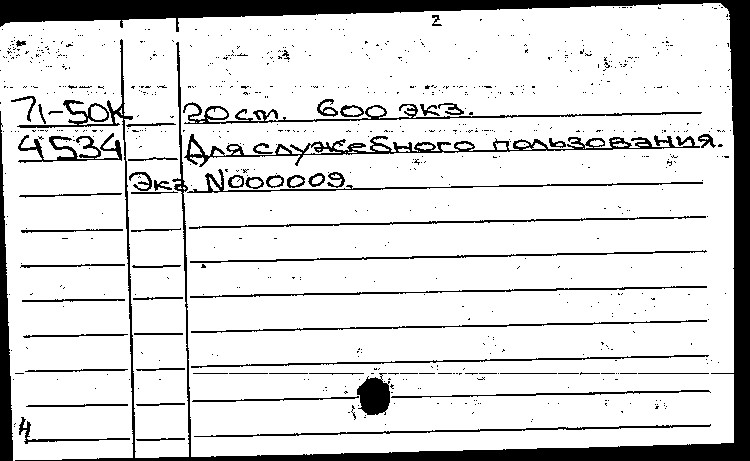 2
71-50К 20 ст. 600 экз.
4534 Для служебного пользования.
Экз. N000009.
4